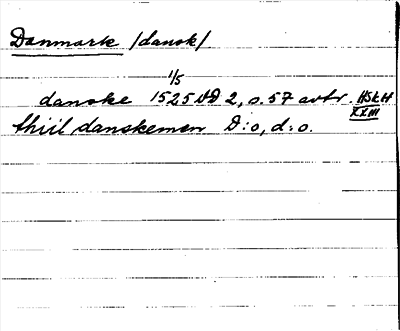 Danmark /dansk/
1/5
danske 1525 DD 2, s. 57 avtr. HSkH
XXIII
thiil danskemen D:o, d:o.